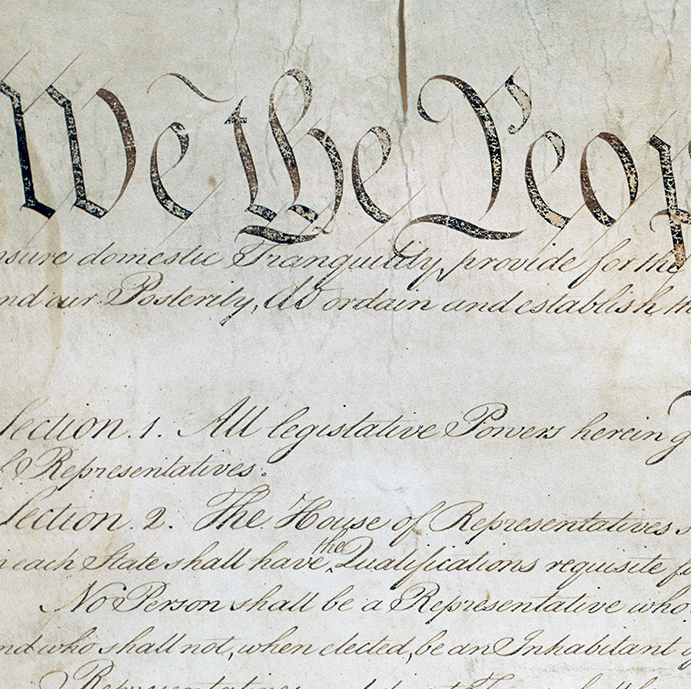 We the Peop
nsure domestic Tranquility, provide for the
nd our Posterity, do ordain and establish th
Section. 1. All legislative Powers herein g
f Representatives.
Section. 2. The House of Representatives s
n each State shall have the Qualifications requisite fo
No Person shall be a Representative who
nd who shall not, when elected, be an Inhabitant o
Representatives